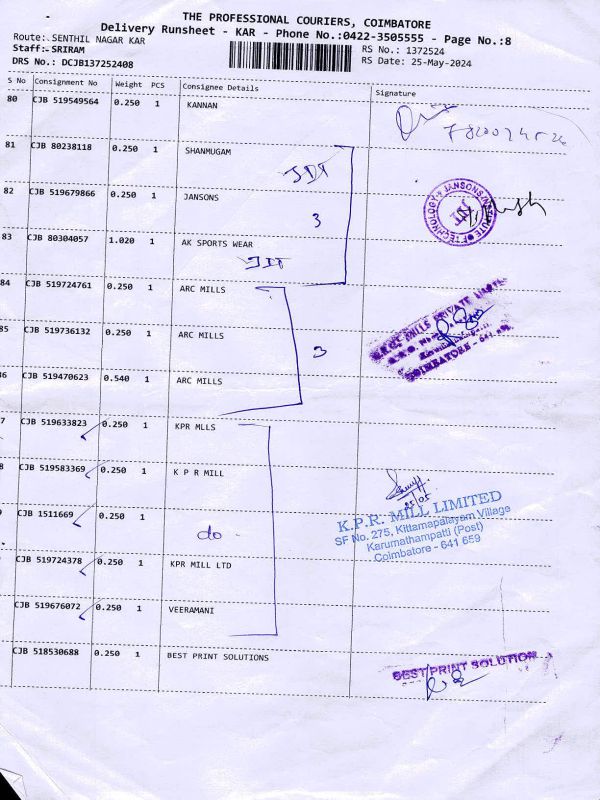 THE PROFESSIONAL COURIERS, COIMBATORE
Delivery Runsheet - KAR - Phone No.:0422-3505555 - Page No.:8
Route: SENTHIL NAGAR KAR
RS No.: 1372524
Staff: SRIRAM
RS Date: 25-May-2024
DRS No.: DCJB137252408
S No Consignment No Weight PCS Consignee Details Signature
80 CJB 519549564 0.250 1 KANNAN
81 CJB 80238118 0.250 1 SHANMUGAM
JDI
82 CJB 519679866 0.250 1 JANSONS
3
JANSONS INSTITUTE OF TECHNOLOGY
83 CJB 80304057 1.020 1 AK SPORTS WEAR
JIT
84 CJB 519724761 0.250 1 ARC MILLS
85 CJB 519736132 0.250 1 ARC MILLS
3
MILLS PRIVATE LIMITED
COIMBATORE - 641
86 CJB 519470623 0.540 1 ARC MILLS
7 CJB 519633823 0.250 1 KPR MLLS
8 CJB 519583369 0.250 1 K P R MILL
25/05
CJB 1511669 0.250 1
do
K.P.R. MILL LIMITED
SF No. 275, Kittamapalayam Village
Karumathampatti (Post)
Coimbatore - 641 659
CJB 519724378 0.250 1 KPR MILL LTD
CJB 519676072 0.250 1 VEERAMANI
CJB 518530688 0.250 1 BEST PRINT SOLUTIONS
BEST PRINT SOLUTION